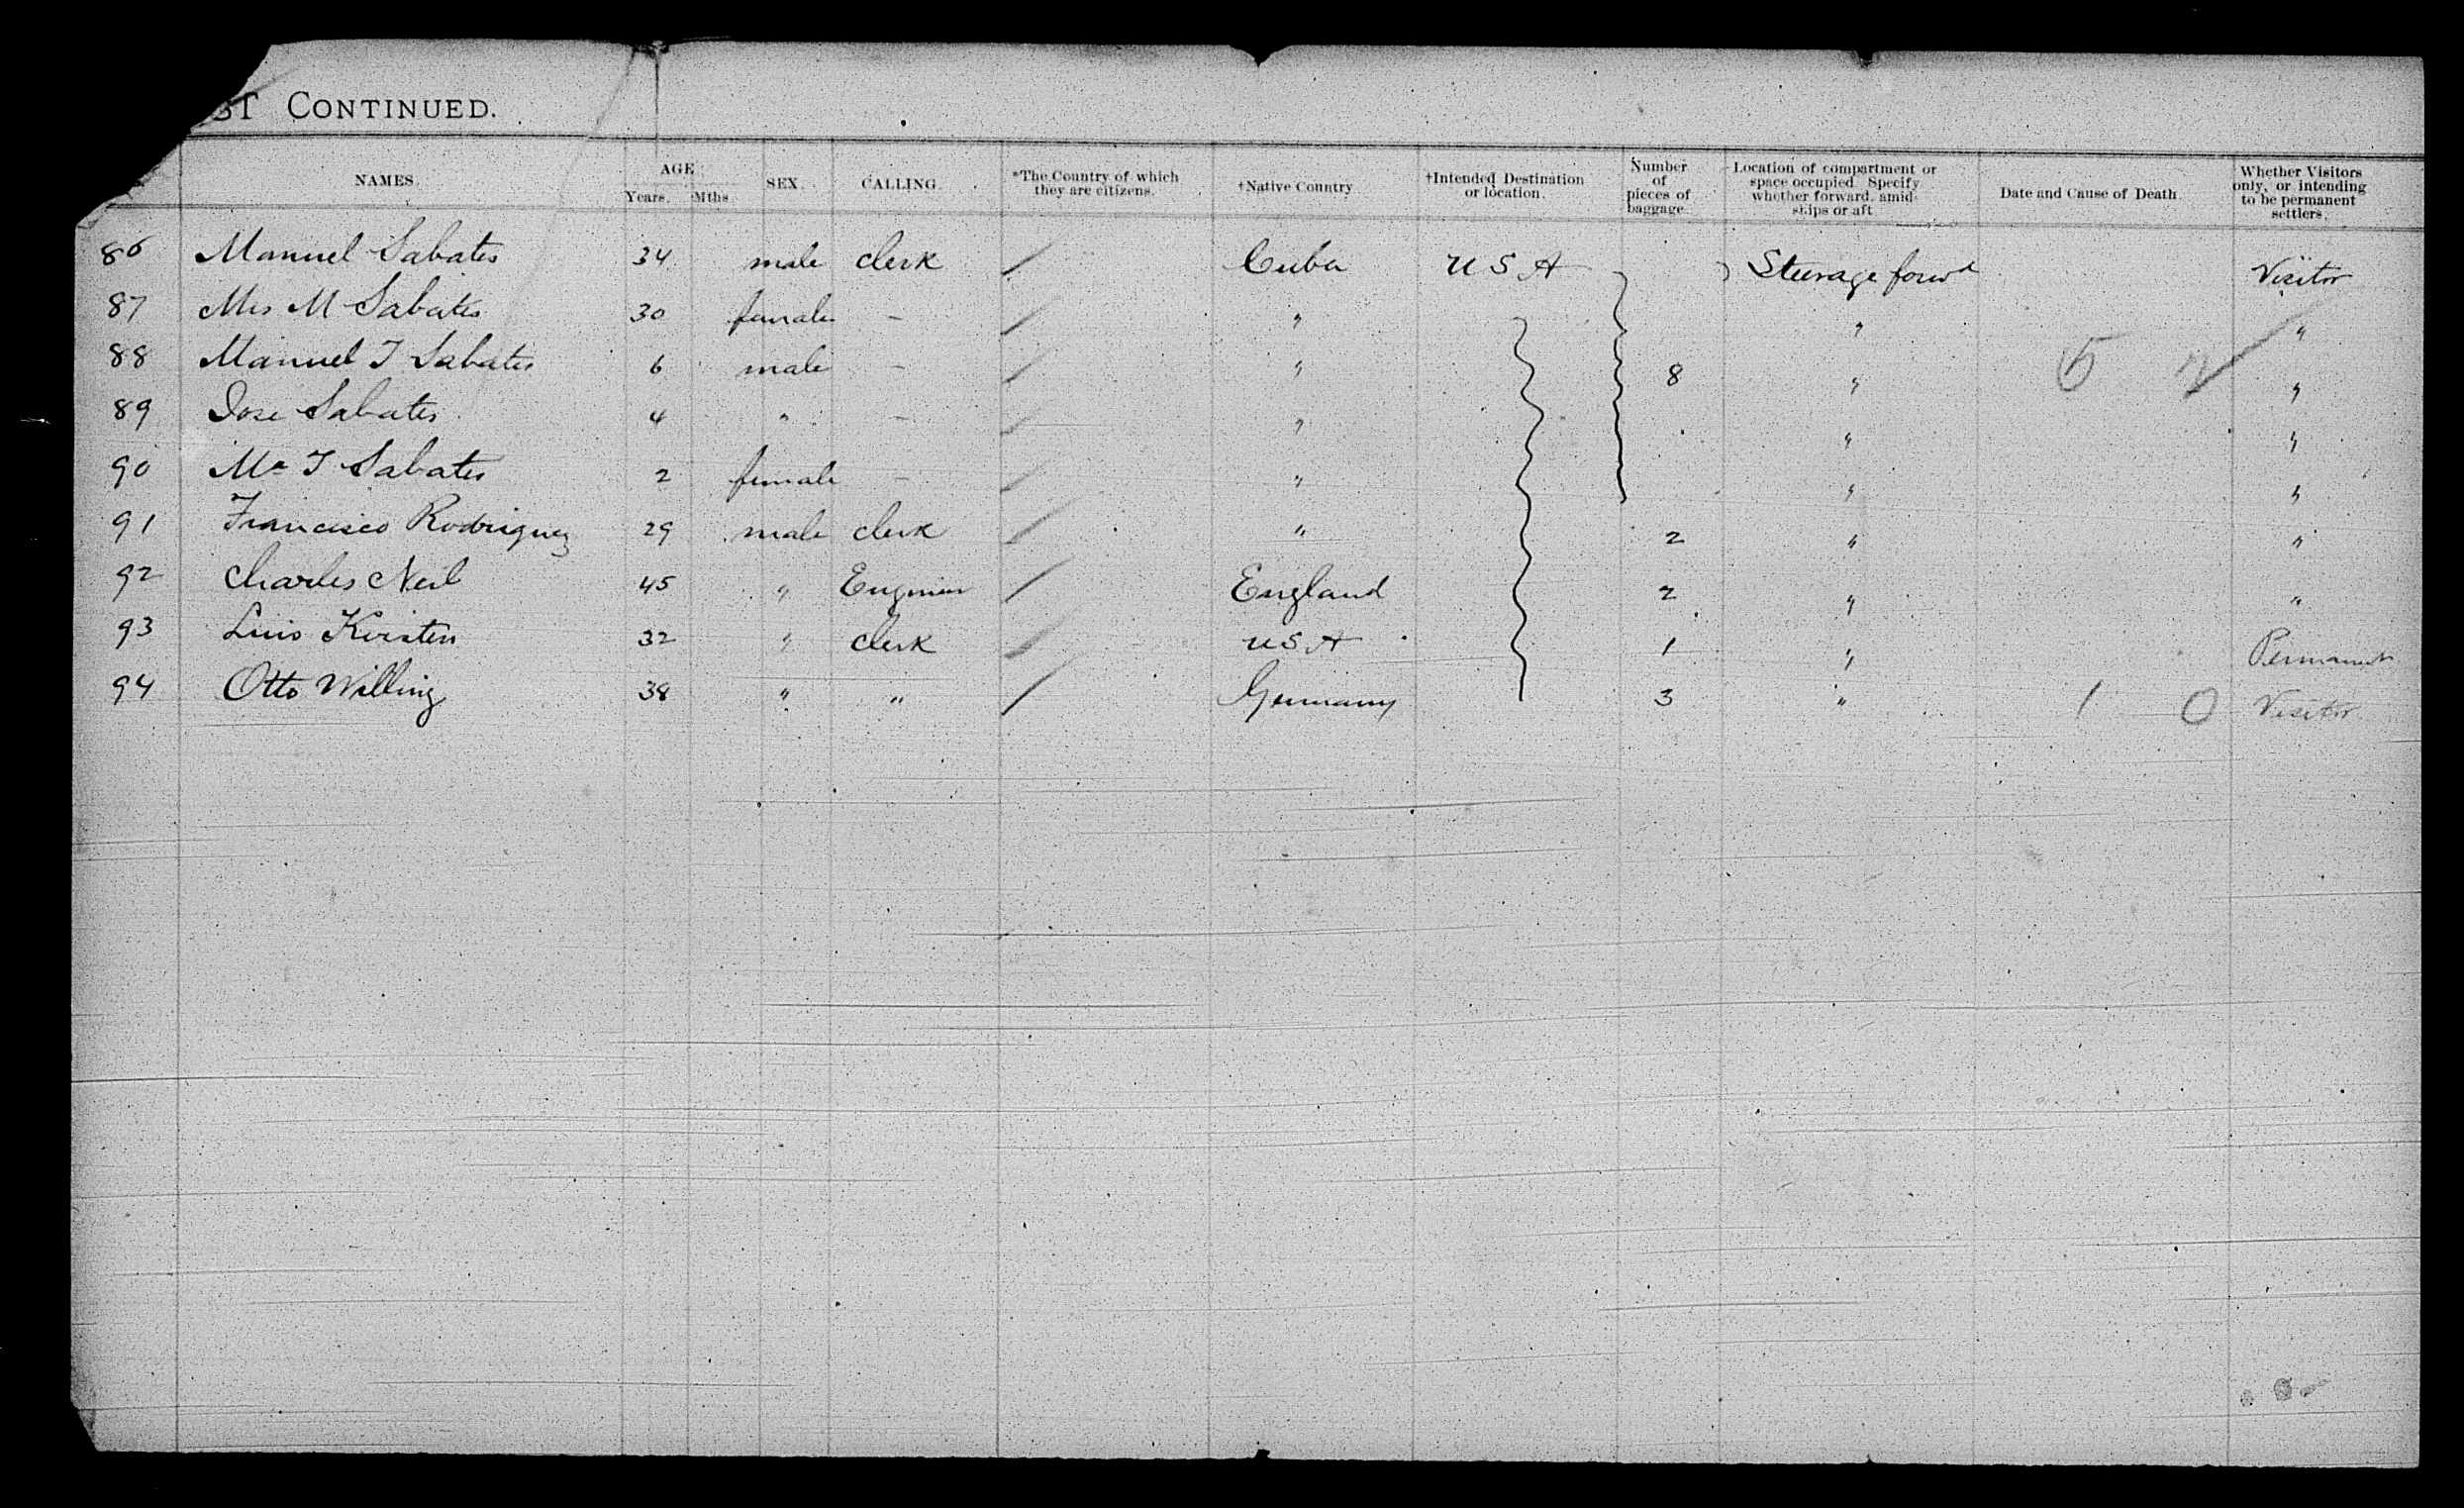 ST CONTINUED.
NAMES. AGE Years. Mths. SEX. CALLING. *The Country of which they are citizens. †Native Country †Intended Destination or location. Number of pieces of baggage Location of compartment or space occupied. Specify whether forward, amidships or aft Date and Cause of Death. Whether Visitors only, or intending to be permanent settlers.
86 Manuel Sabates 34 male clerk / Cuba U S A Steerage forwd Visitor
87 Mrs M Sabates 30 female — / " " "
88 Manuel J Sabates 6 male — / " 8 " 5 "
89 Jose Sabates 4 " — / " " "
90 Ma J Sabates 2 female — / " " "
91 Francisco Rodriguez 29 male clerk / " 2 " "
92 Charles Neil 45 " Engineer / England 2 " "
93 Luis Kirsten 32 " clerk / U S A 1 " Permanent
94 Otto Willing 38 " " / Germany 3 " 1 0 Visitor